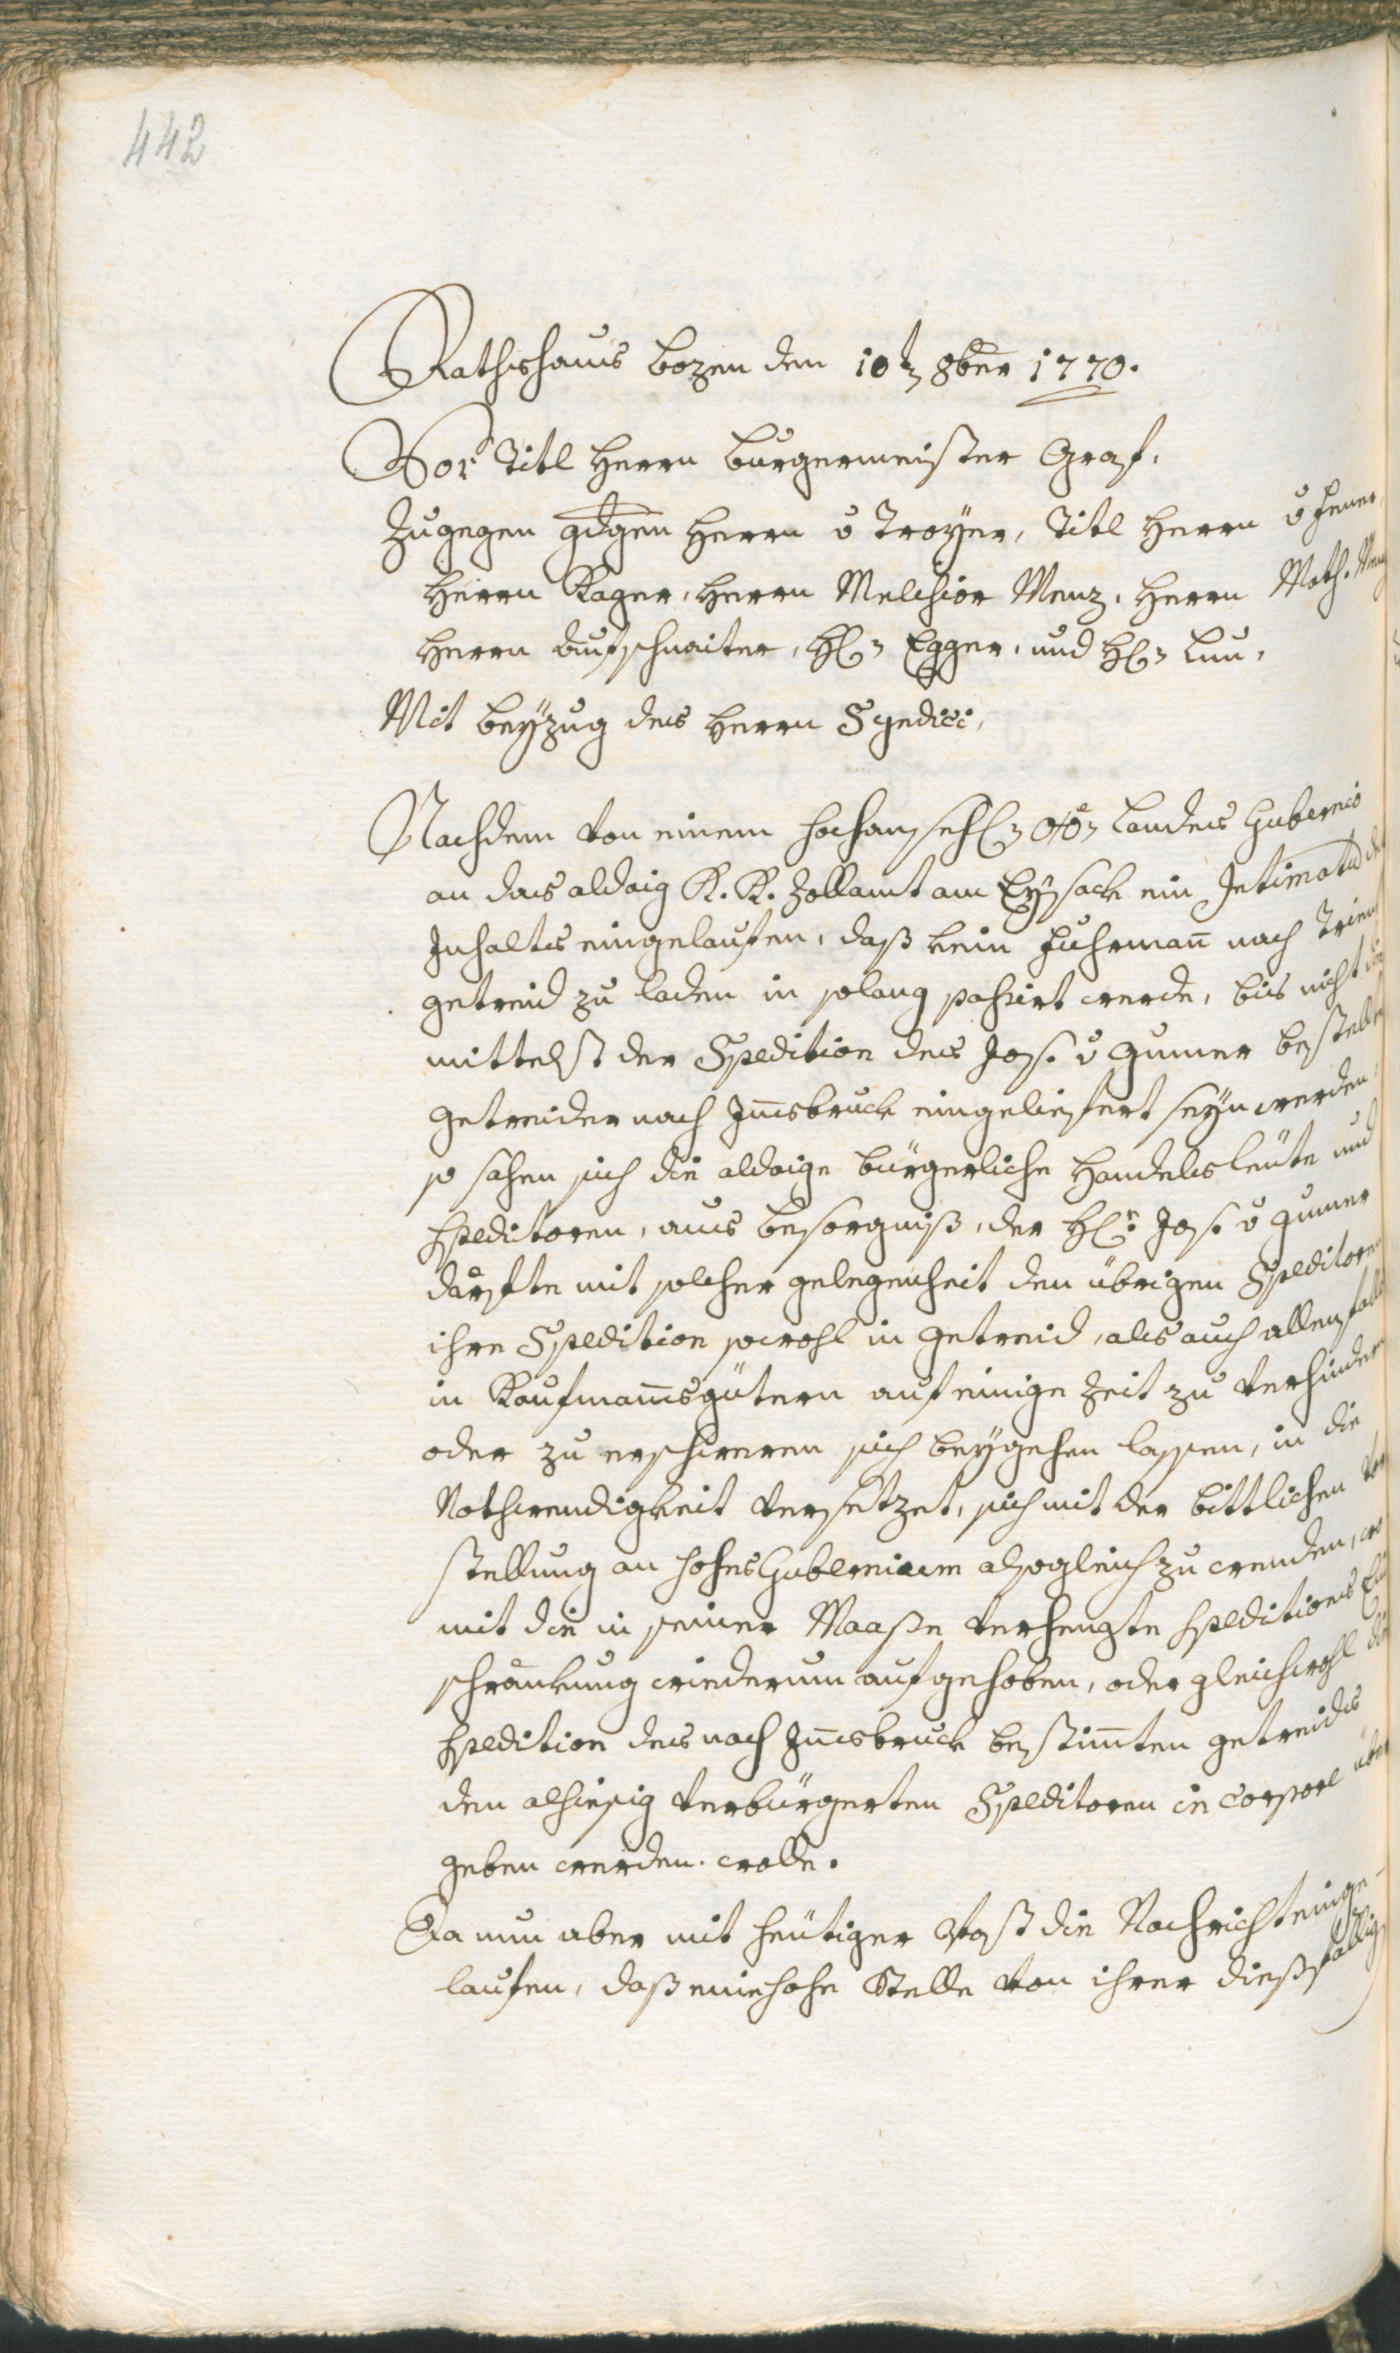 442
Rathshaus bozen den 10t 8ber 1770.
Vor Titl Herrn burgermeister Graf,
Zugegen gdgen Herrn v Troyer, Titl Herrn v Jener
Herrn Kager, Herrn Melchior Menz, Herrn Math. Menz
Herrn Aufschnaiter, H. Egger, und H. Lun,
Mit beyzug des Herrn Syndici,
Nachdem von einem hochansehl. Oö. Landes Gubernio
an das aldaig K. K. Zollamt am Eysack ein Intimatum des
Inhalts eingelaufen, daß kein Fuhrmañ nach Trient
getreid zu laden in solang passirt werde, bis nicht die
mittelst der Spedition des Jos. v Gumer bestellte
getreider nach Iñsbruck eingeliefert seyn werden,
so sahen sich die aldaige bürgerliche Handelsleüte und
Speditoren, aus besorgniß, der H.r Jos. v gumer
därfte mit solcher gelegenheit den übrigen Speditoren
ihre Spedition sowohl in getreid, als auch allenfalls
in Kaufmañsgütern auf einige Zeit zu verhindern
oder zu erschweren sich beygehen lassen, in die
Nothwendigkeit versetzet, sich mit der bittlichen Vor
stellung an hohes Gubernium alsogleich zu wenden, wo
mit die in seiner Maaße verhengte Speditions Ein
schränkung wiederum aufgehoben, oder gleichwohl die
Spedition des nach Iñsbruck bestim̃ten getreides
den alhiesig verbürgerten Speditoren in Corpore über
geben werden wolle.
Da nun aber mit heütiger Post die Nachricht einge-
laufen, daß eine hohe Stelle von ihrer dießfällig